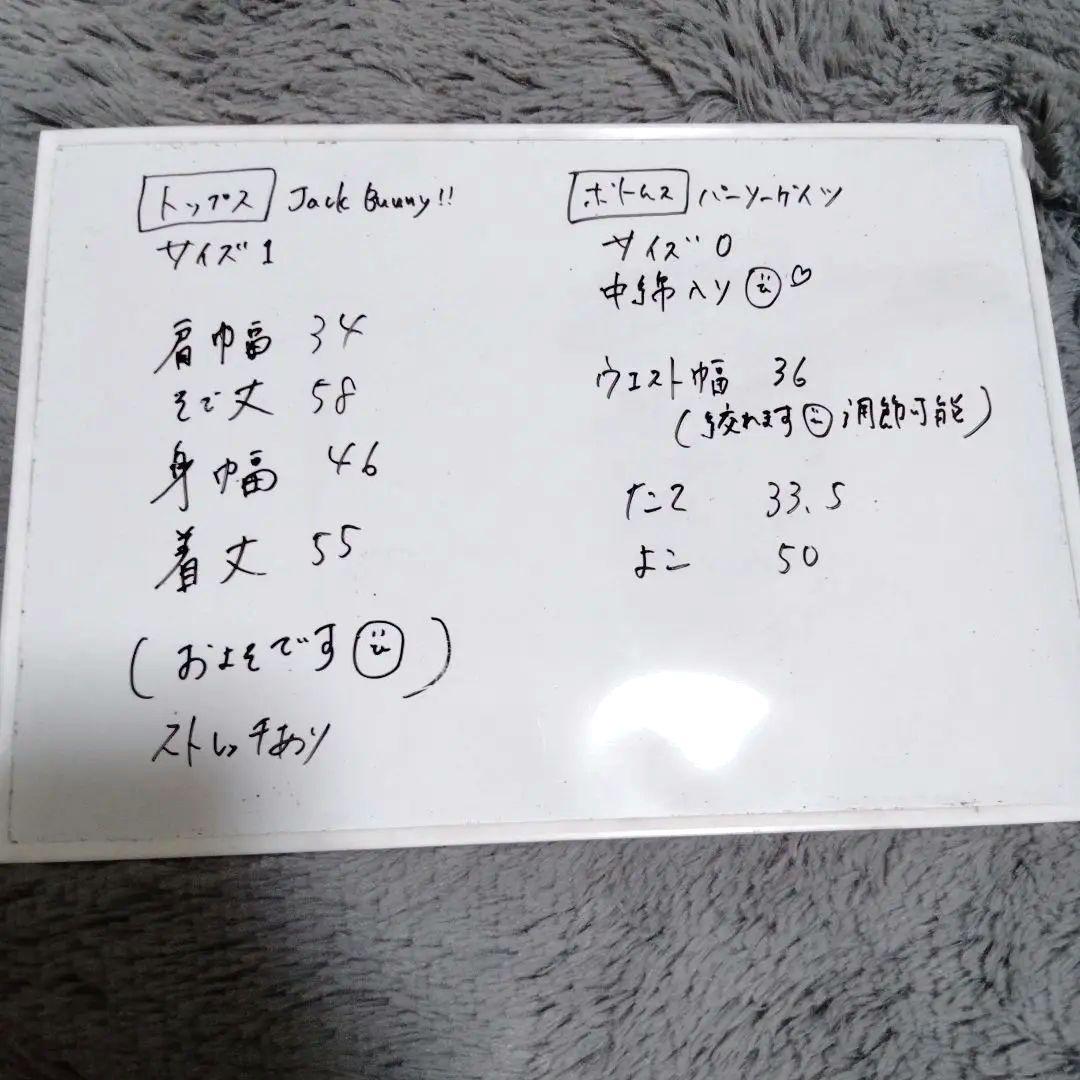 トップス Jack Bunny!!
サイズ1
肩巾幅 34
そで丈 58
身幅 46
着丈 55
(およそです)
ストレッチあり
ボトムス パーリーゲイツ
サイズ0
中綿入り♡
ウエスト幅 36
(絞れます 調節可能)
たて 33.5
よこ 50